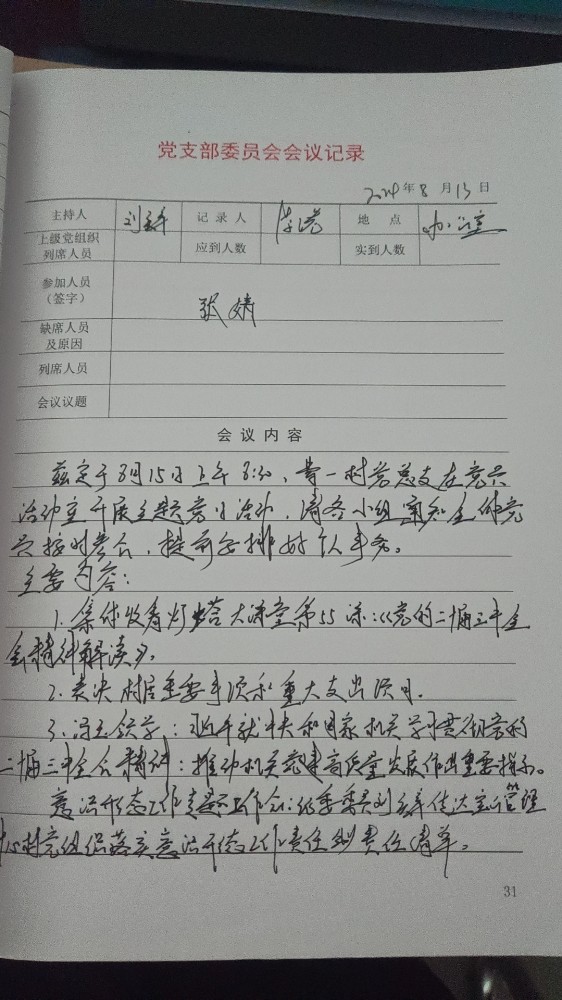 党支部委员会会议记录
2024年8月13日
主持人 刘 记录人 李 地点 办公室
上级党组织列席人员 应到人数 实到人数
参加人员（签字） 张婧
缺席人员及原因
列席人员
会议议题
会议内容
兹定于8月15日上午8:30，一村党总支在党员
活动室开展主题党日活动，请各小组通知全体党
员按时参会，提前安排好个人事务。
主要内容：
1.集体收看灯塔大课堂第55课：《党的二十届三中全
会精神解读》。
2.表决村居重要事项和重大支出项目。
3.领学：习近平就中央和国家机关学习贯彻党的
二十届三中全会精神：推动机关党建高质量发展作出重要指示。
意识形态工作专题工作会：委委员刘传达管理
村党组织落实意识形态工作责任制责任清单。
31